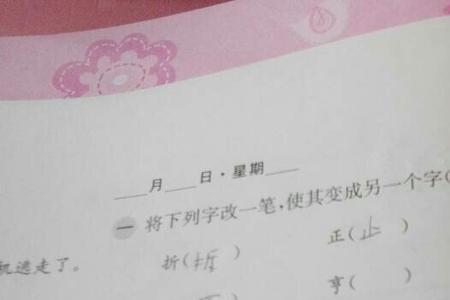 ___月___日·星期___
一 将下列字改一笔,使其变成另一个字(
折(拆) 正(止)
机逃走了。
亨( )